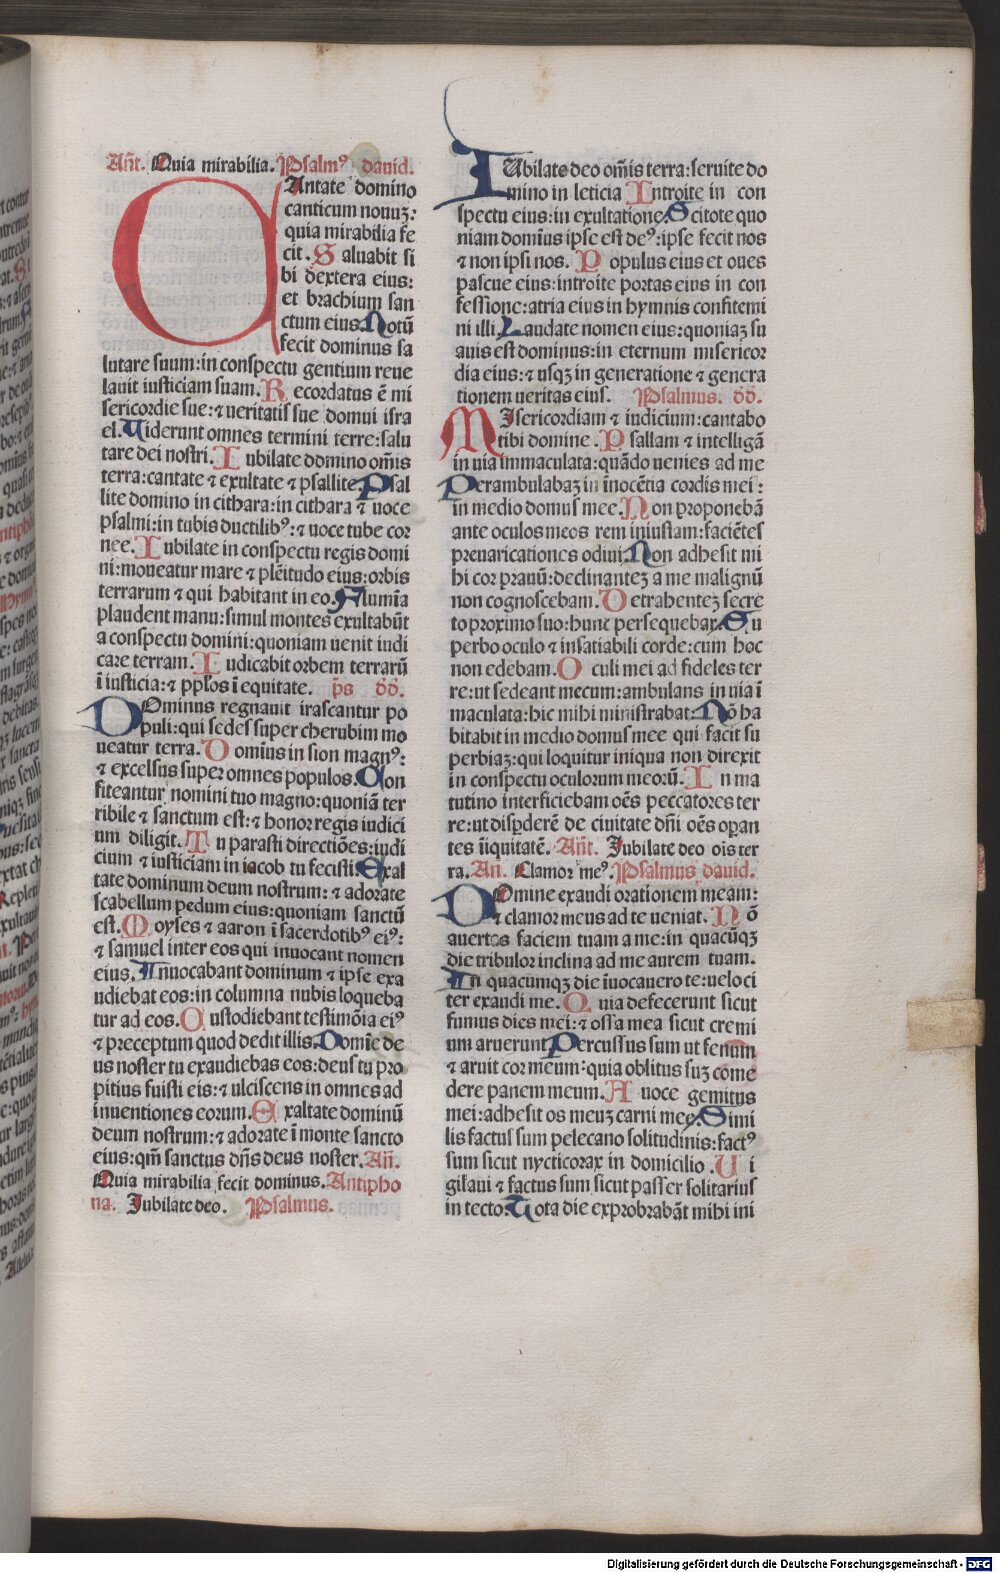 Añt. Quia mirabilia. Psalm⁹ dauid.
CAntate domino
canticum nouuꝫ:
quia mirabilia fe
cit. Saluabit si
bi dextera eius:
et brachium san
ctum eius. Notū
fecit dominus sa
lutare suum: in conspectu gentium reue
lauit iusticiam suam. Recordatus ē mi
sericordie sue: ⁊ ueritatis sue domui isra
el. Uiderunt omnes termini terre: salu
tare dei nostri. Iubilate domino om̄is
terra: cantate ⁊ exultate ⁊ psallite. Psal
lite domino in cithara: in cithara ⁊ uoce
psalmi: in tubis ductilib⁹: ⁊ uoce tube cor
nee. Iubilate in conspectu regis domi
ni: moueatur mare ⁊ plēitudo eius: orbis
terrarum ⁊ qui habitant in eo. Flumīa
plaudent manu: simul montes exultabūt
a conspectu domini: quoniam uenit iudi
care terram. Iudicabit orbem terrarū
ī iusticia: ⁊ pplos ī equitate. p̄s dd̄.
DOminus regnauit irascantur po
puli: qui sedes super cherubim mo
ueatur terra. Domīus in sion magn⁹:
⁊ excelsus super omnes populos. Con
fiteantur nomini tuo magno: quoniā ter
ribile ⁊ sanctum est: ⁊ honor regis iudici
um diligit. Tu parasti directiōes: iudi
cium ⁊ iusticiam in iacob tu fecisti. Exal
tate dominum deum nostrum: ⁊ adorate
scabellum pedum eius: quoniam sanctū
est. Moyses ⁊ aaron ī sacerdotib⁹ ei⁹:
⁊ samuel inter eos qui inuocant nomen
eius. Inuocabant dominum ⁊ ipse exa
udiebat eos: in columna nubis loqueba
tur ad eos. Custodiebant testimōia ei⁹
⁊ preceptum quod dedit illis. Domīe de
us noster tu exaudiebas eos: deus tu pro
pitius fuisti eis: ⁊ ulciscens in omnes ad
inuentiones eorum. Exaltate dominū
deum nostrum: ⁊ adorate ī monte sancto
eius: qm̄ sanctus dn̄s deus noster. Añ.
Quia mirabilia fecit dominus. Antipho
na. Jubilate deo. Psalmus.
IUbilate deo om̄is terra: seruite do
mino in leticia Introite in con
spectu eius: in exultatione. Scitote quo
niam domīus ipse est de⁹: ipse fecit nos
⁊ non ipsi nos. Populus eius et oues
pascue eius: introite portas eius in con
fessione: atria eius in hymnis confitemi
ni illi. Laudate nomen eius: quoniaꝫ su
auis est dominus: in eternum misericor
dia eius: ⁊ usqꝫ in generatione ⁊ genera
tionem ueritas eius. Psalmus. dd̄.
MIsericordiam ⁊ iudicium: cantabo
tibi domine. Psallam ⁊ intelligā
in uia immaculata: quādo uenies ad me
Perambulabaꝫ in īnocētia cordis mei:
in medio domus mee. Non proponebā
ante oculos meos rem iniustam: faciētes
preuaricationes odiui. Non adhesit mi
hi cor prauū: declinanteꝫ a me malignū
non cognoscebam. Detrahenteꝫ secre
to proximo suo: hunc persequebar. Su
perbo oculo ⁊ insatiabili corde: cum hoc
non edebam. Oculi mei ad fideles ter
re: ut sedeant mecum: ambulans in uia ī
maculata: hic mihi ministrabat. Nō ha
bitabit in medio domus mee qui facit su
perbiaꝫ: qui loquitur iniqua non direxit
in conspectu oculorum meorū. In ma
tutino interficiebam oēs peccatores ter
re: ut disꝑderē de ciuitate dn̄i oēs oꝑan
tes īiquitatē. Añt. Jubilate deo ois ter
ra. Añ. Clamor me⁹. Psalmus dauid.
DOmine exaudi orationem meam:
⁊ clamor meus ad te ueniat. Nō
auertas faciem tuam a me: in quacūqꝫ
die tribulor inclina ad me aurem tuam.
In quacumqꝫ die īuocauero te: ueloci
ter exaudi me. Quia defecerunt sicut
fumus dies mei: ⁊ ossa mea sicut cremi
um aruerunt. Percussus sum ut fenum
⁊ aruit cor meum: quia oblitus suꝫ come
dere panem meum. A uoce gemitus
mei: adhesit os meuꝫ carni mee. Simi
lis factus sum pelecano solitudinis: fact⁹
sum sicut nycticorax in domicilio. Ui
gilaui ⁊ factus sum sicut passer solitarius
in tecto. Tota die exprobrabāt mihi ini
Digitalisierung gefördert durch die Deutsche Forschungsgemeinschaft - DFG